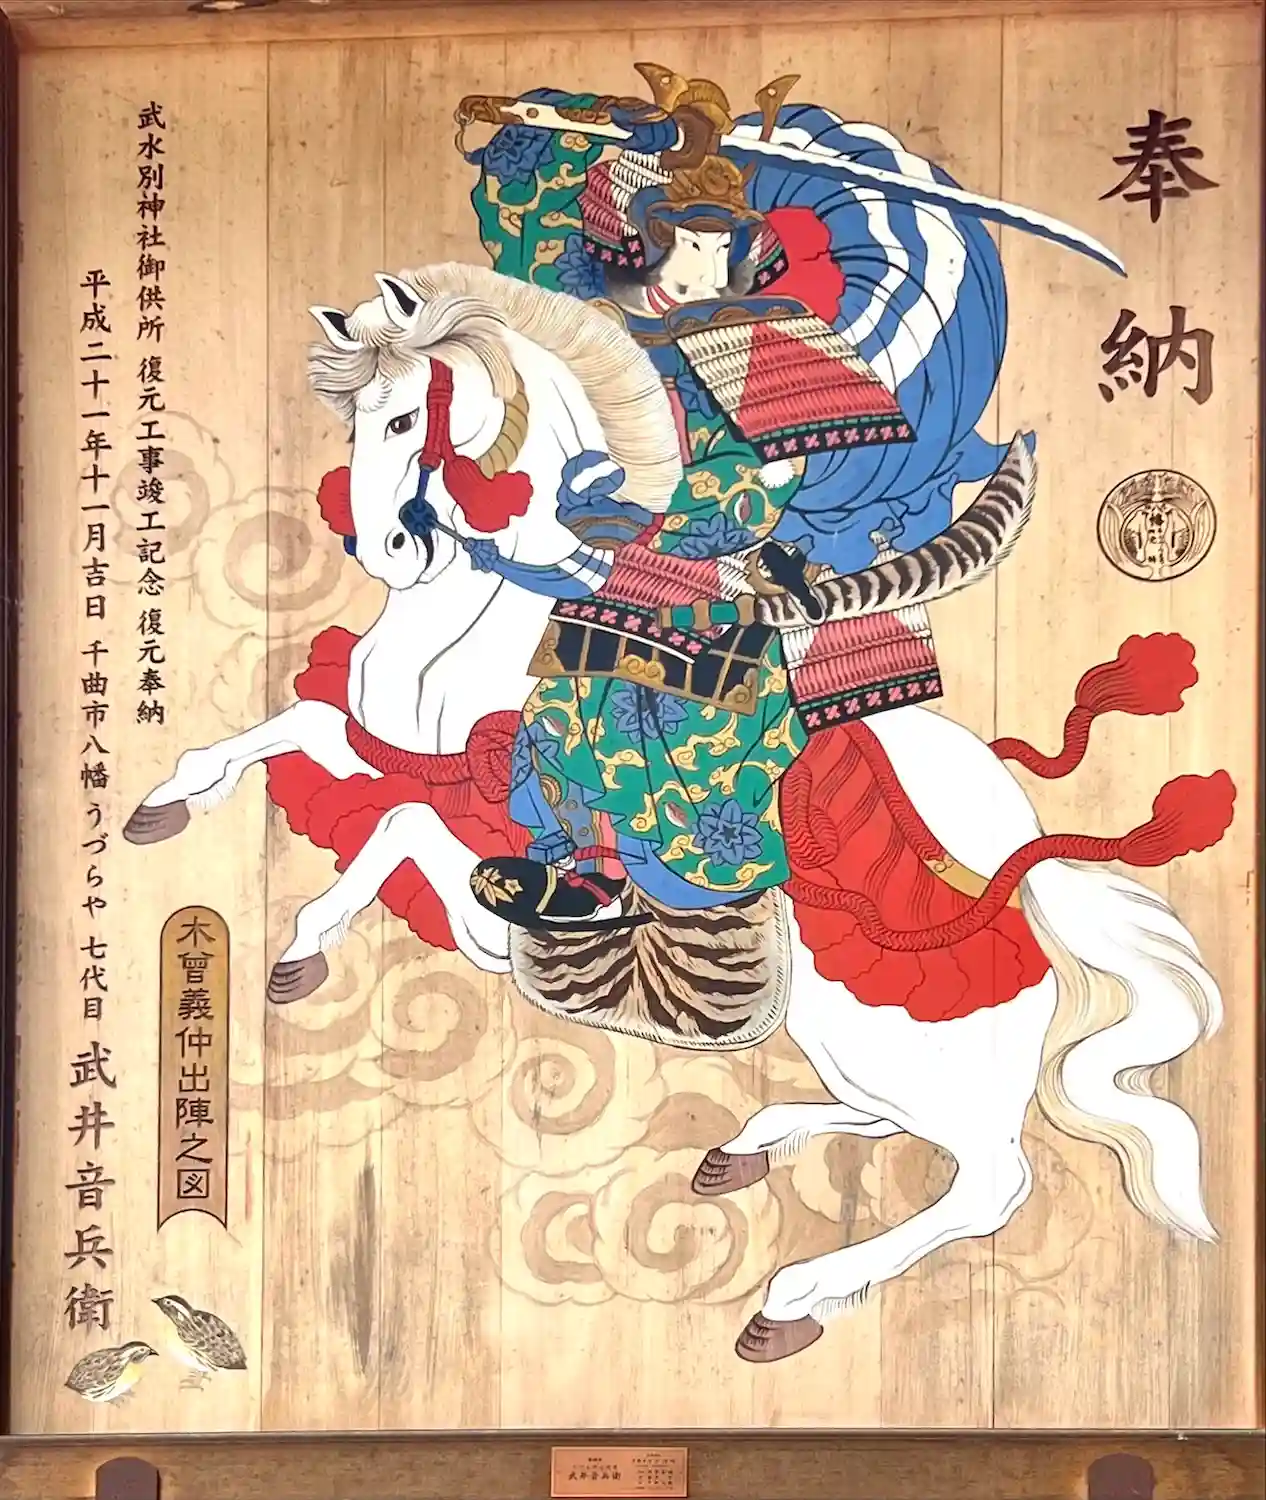 奉納
武水別神社御供所 復元工事竣工記念 復元奉納
平成二十一年十一月吉日 千曲市八幡 うづらや 七代目 武井音兵衛
木曾義仲出陣之図
武井音兵衛